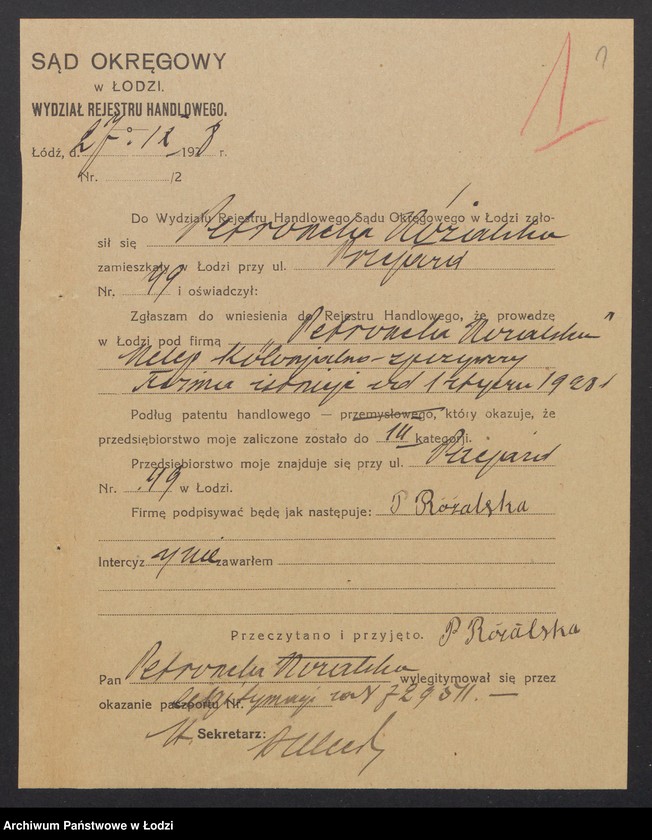 SĄD OKRĘGOWY
w ŁODZI.
WYDZIAŁ REJESTRU HANDLOWEGO.
1
Łódź, d. 27. IX 1928 r.
Nr. /2
Do Wydziału Rejestru Handlowego Sądu Okręgowego w Łodzi zgło-
sił się Petronela Różalska
zamieszkały w Łodzi przy ul. Przejazd
Nr. 49 i oświadczył:
Zgłaszam do wniesienia do Rejestru Handlowego, że prowadzę
w Łodzi pod firmą "Petronela Rozalska"
sklep kolonjalno-spożywczy
Firma istnieje od 1 stycznia 1928 r
Podług patentu handlowego — przemysłowego, który okazuję, że
przedsiębiorstwo moje zaliczone zostało do III kategorji.
Przedsiębiorstwo moje znajduje się przy ul. Przejazd
Nr. 49 w Łodzi.
Firmę podpisywać będę jak następuje: P Różalska
Intercyzy nie zawarłem
Przeczytano i przyjęto. P Różalska
Pan Petronela Rozalska wylegitymował się przez
okazanie paszportu Nr. legitymacji za N
Sekretarz:
Archiwum Państwowe w Łodzi